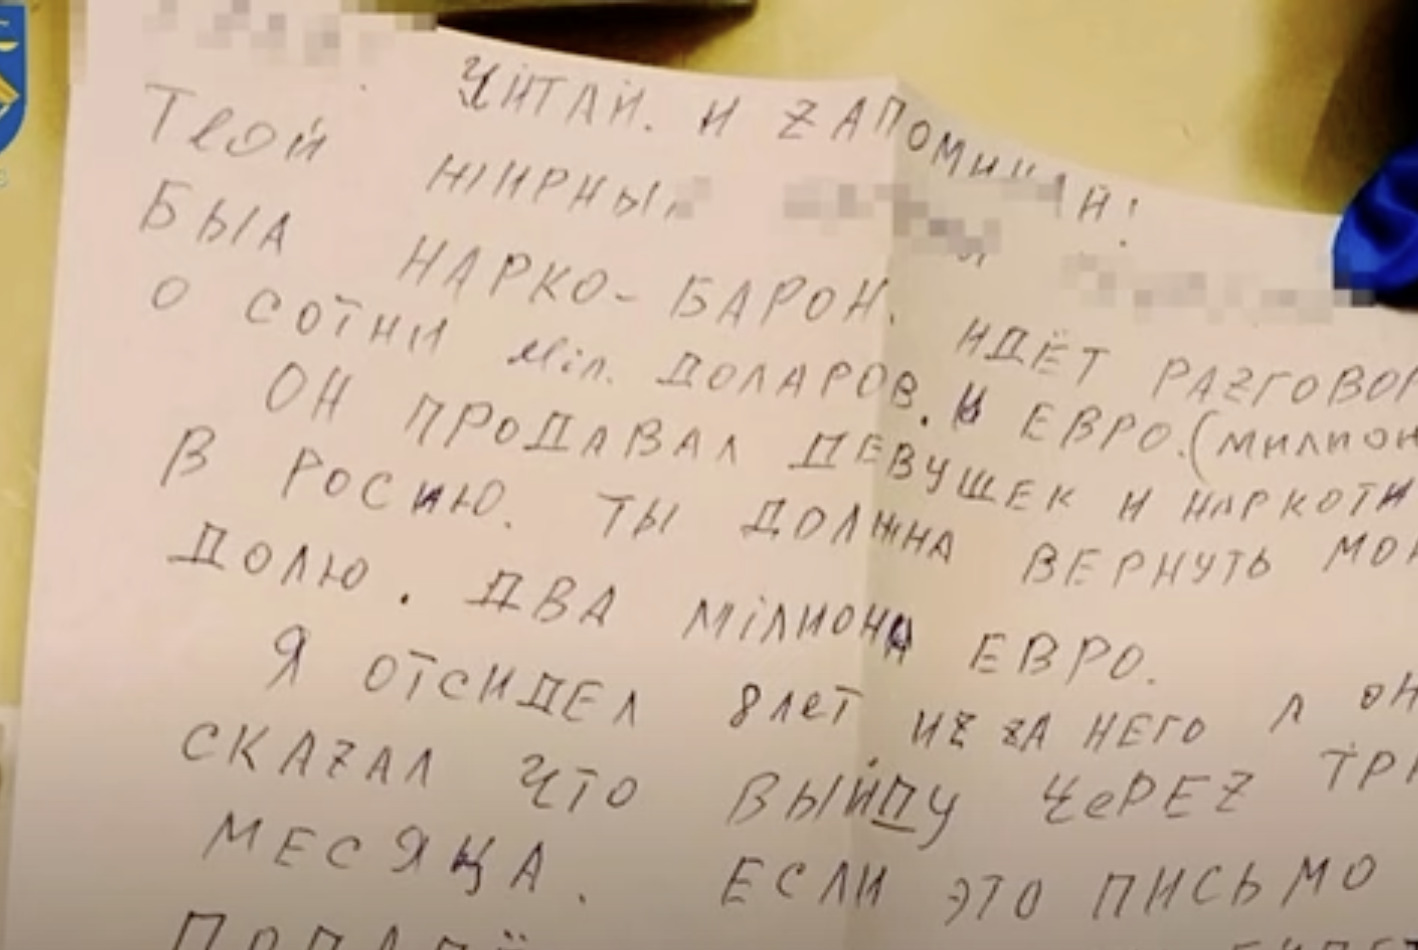 ЧИТАЙ. И ZАПОМИНАЙ!
Твой ЖИРНЫЙ
БЫЛ НАРКО-БАРОН. ИДЁТ РАZГОВОР
О СОТНИ міл. ДОЛАРОВ. И ЕВРО. (МИЛИОН
ОН ПРОДАВАЛ ДЕВУШЕК И НАРКОТИ
В РОСИЮ. ТЫ ДОЛЖНА ВЕРНУТЬ МОЮ
ДОЛЮ. ДВА МіЛИОНА ЕВРО.
Я ОТСИДЕЛ 8 лет ИZ ZА НЕГО А ОН
СКАZАЛ ЧТО ВЫЙДУ ЧеРЕZ ТРИ
МЕСЯЦА. ЕСЛИ ЭТО ПИСЬМО